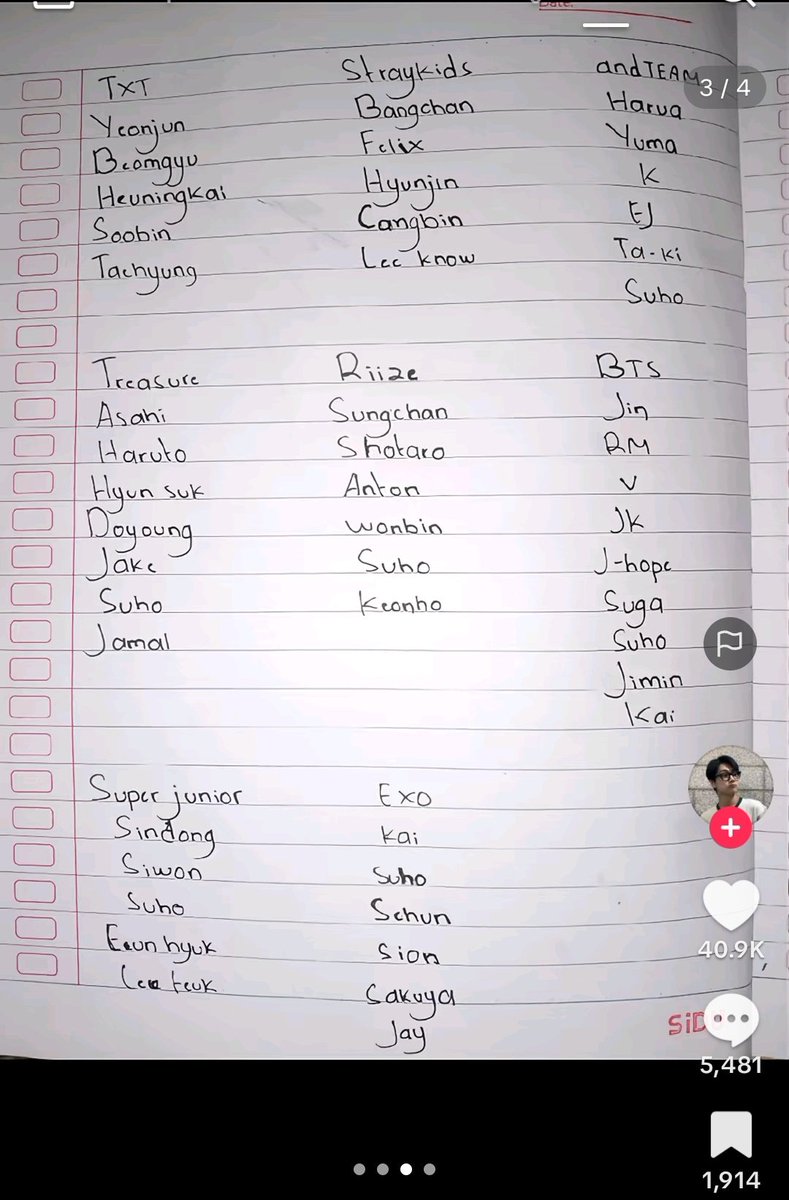 Date:
3 / 4
TXT
Yeonjun
Beomgyu
Heuningkai
Soobin
Taehyung
Straykids
Bangchan
Felix
Hyunjin
Cangbin
Lee know
andTEAM
Harua
Yuma
K
EJ
Ta-ki
Suho
Treasure
Asahi
Haruto
Hyun suk
Doyoung
Jake
Suho
Jamal
Riize
Sungchan
Shotaro
Anton
wonbin
Suho
Keonho
BTS
Jin
RM
V
JK
J-hope
Suga
Suho
Jimin
Kai
Super junior
Sindong
Siwon
Suho
Eeunhyuk
Lee teuk
Exo
Kai
Suho
Sehun
Sion
Sakuya
Jay
40.9K
5,481
1,914